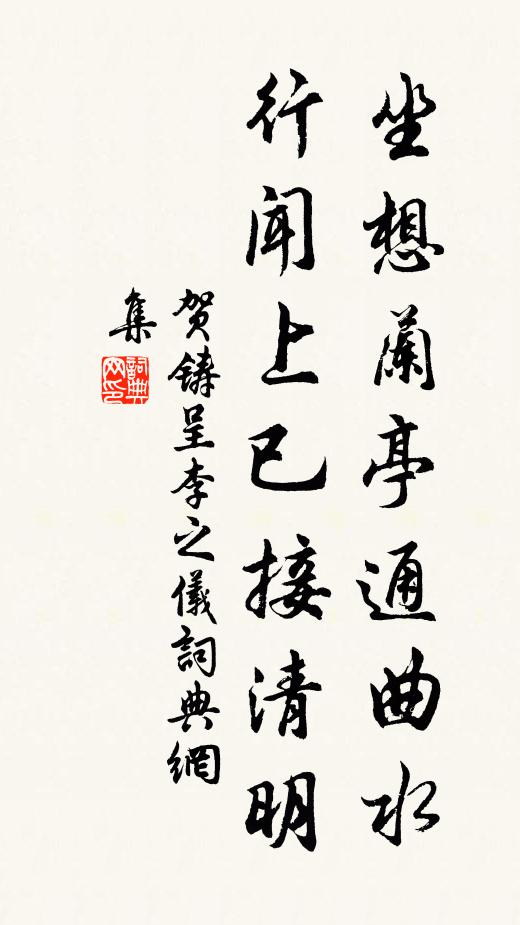 坐想蘭亭通曲水
行聞上巳接清明
賀鑄呈李之儀詞典網
集
詞典網印